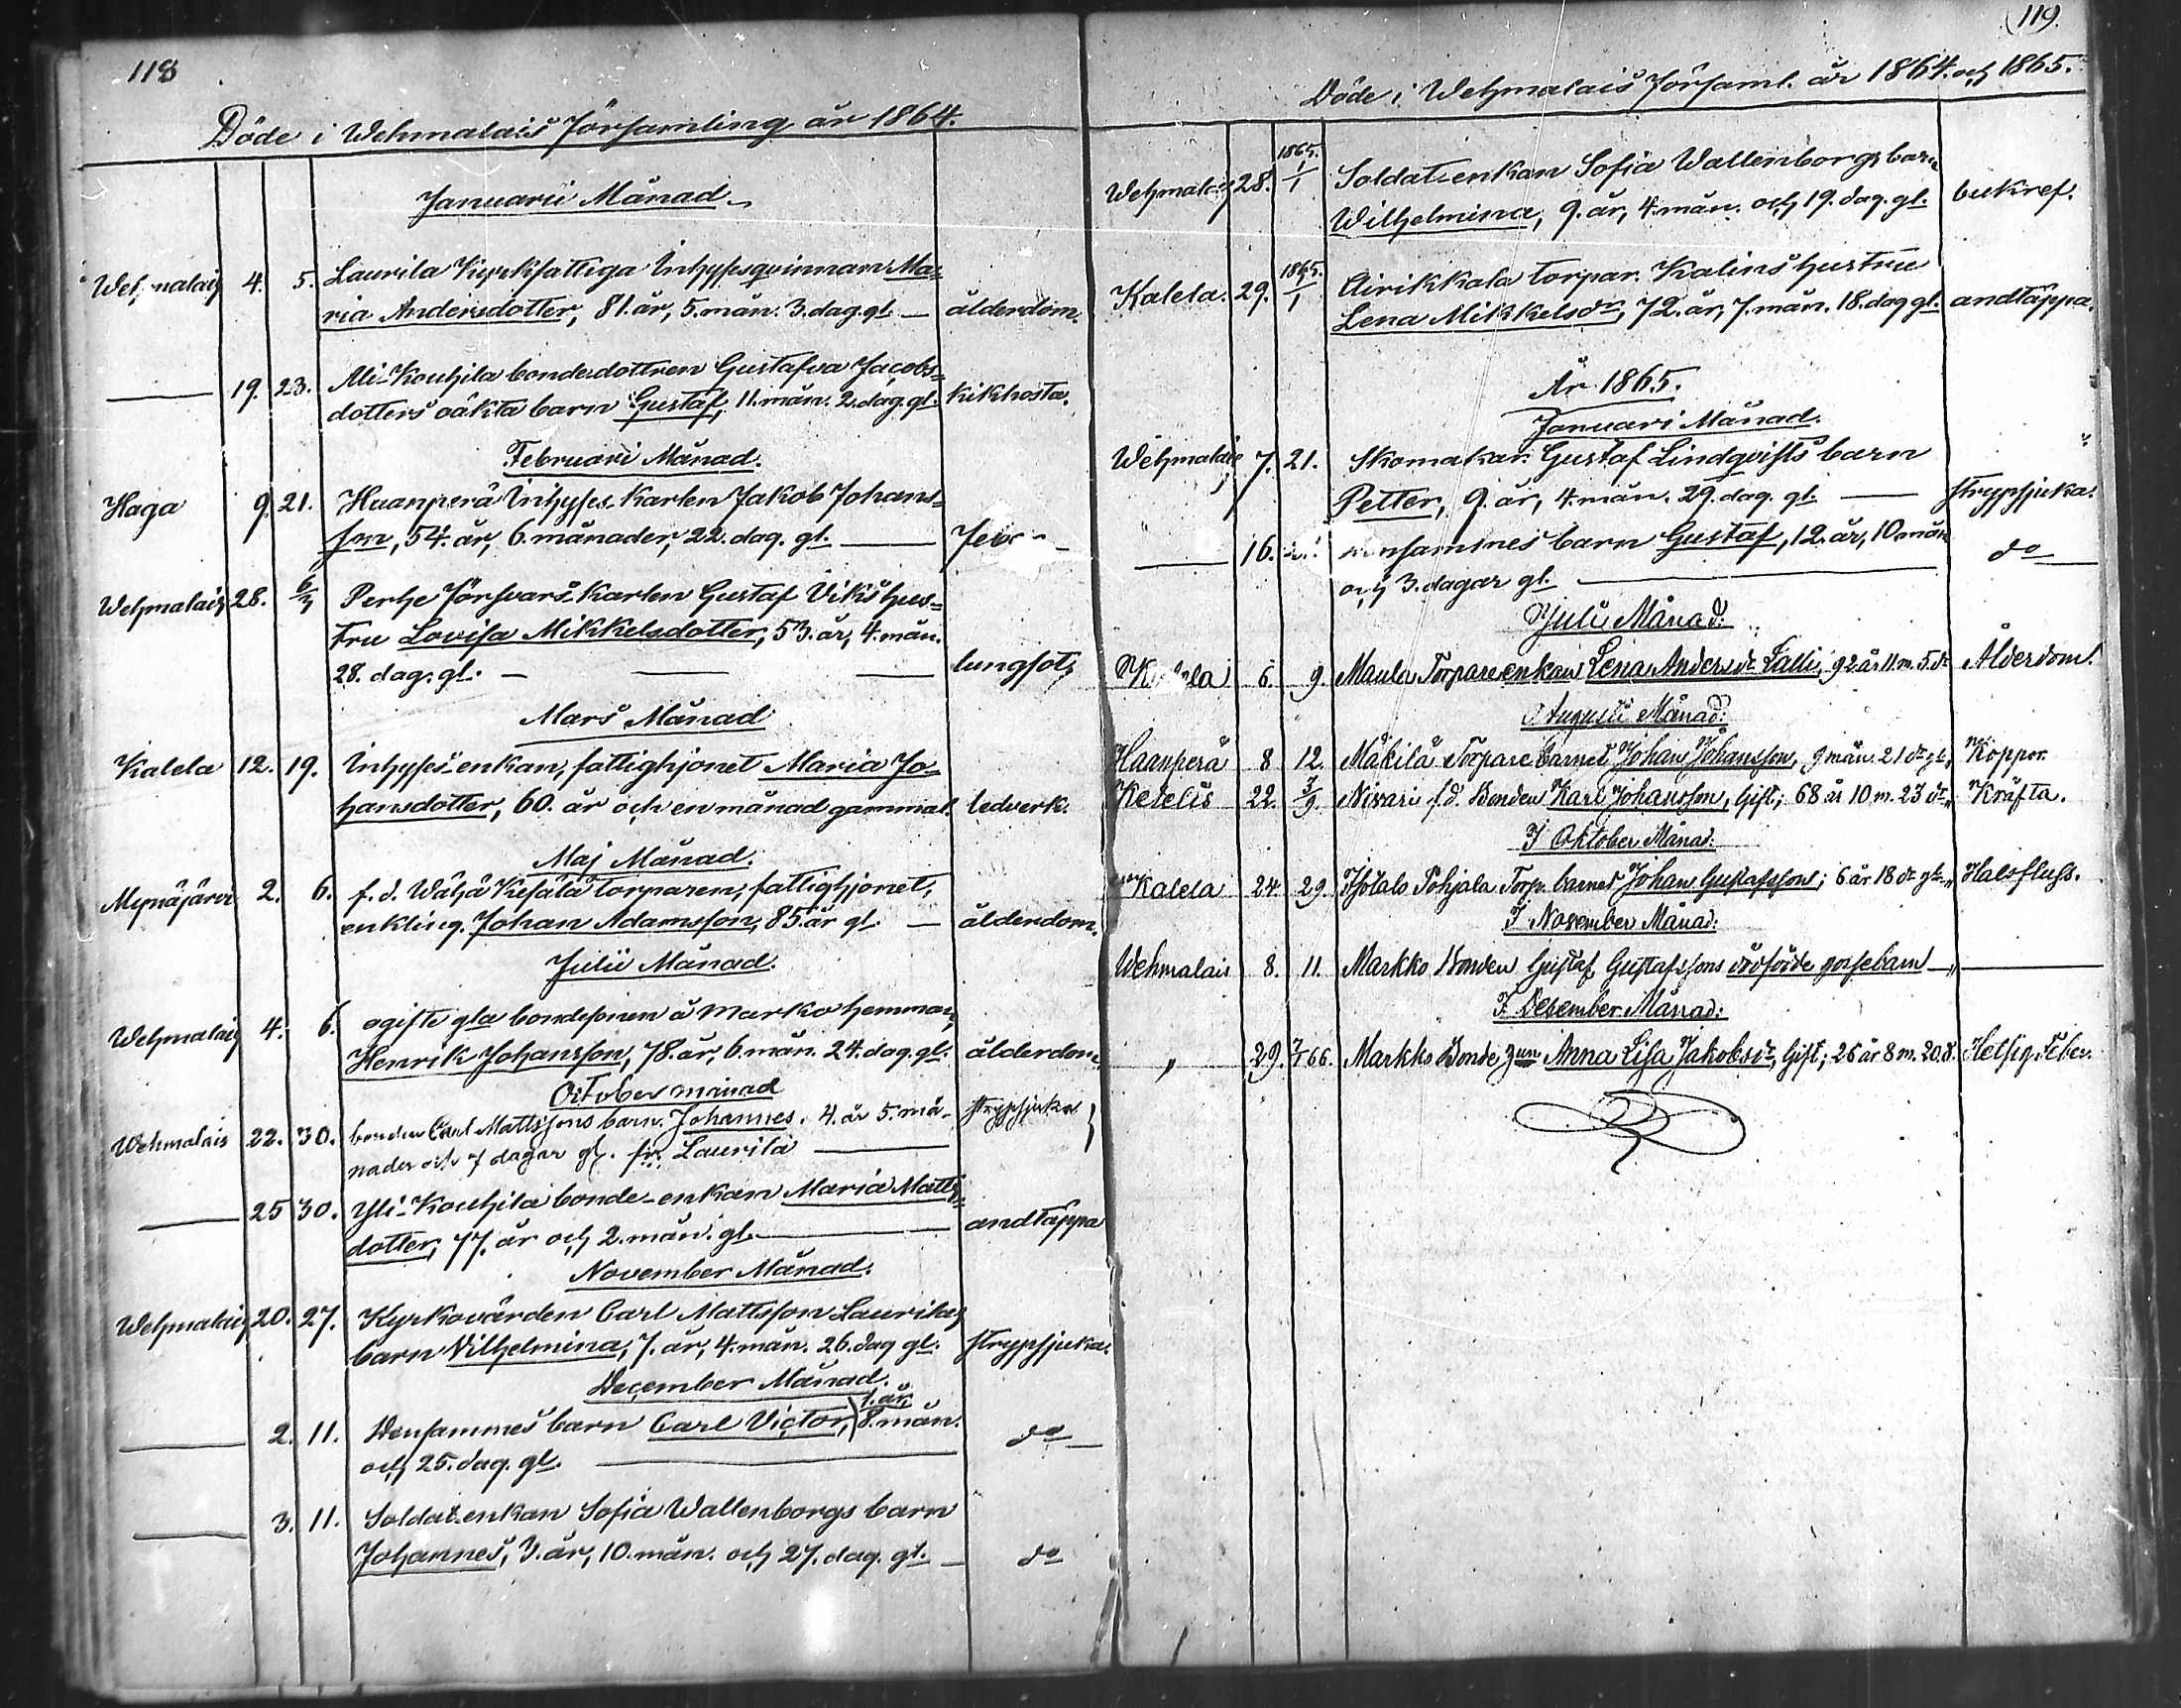 118
Döde i Wehmalais Församling år 1864.
Januarii Månad.
Wehmalais 4. 5. Laurila Kyrkfattiga Inhysesqvinnan Ma-
ria Andersdotter, 81. år, 5. mån. 3. dag. gl. — ålderdom.
— 19. 23. Ali-Kouhila bondedottren Gustafva Jacobs-
dotters oäkta barn Gustaf, 11. mån. 2. dag. gl. kikhosta.
Februari Månad.
Haga 9. 21. Haanperä Inhyses-Karlen Jakob Johans-
son, 54. år, 6. månader, 22. dag. gl. —
Wehmalais 28. 6/3 Perhe Försvars-Karlen Gustaf Viks hus-
tru Lovisa Mikkelsdotter, 53. år, 4. mån.
28. dag. gl. — lungsot
Mars Månad
Kalela 12. 19. Inhyses-enkan, fattighjonet Maria Jo-
hansdotter, 60. år och en månad gammal. ledverk.
Maj Månad.
Mynäjärvi 2. 6. f. d. Wähä Kesälä torparen, fattighjonet,
enkling. Johan Adamsson, 85. år gl. — ålderdom.
Julii Månad.
Wehmalais 4. 6. ogifte gla bondesonen å Marko hemman,
Henrik Johansson, 78. år, 6. mån. 24. dag. gl. ålderdom
October månad
Wehmalais 22. 30. bonden Carl Mattssons barn. Johannes. 4. år 5. må-
nader och 7 dagar gl. fr. Laurila — strypsjuka
— 25 30. Yli-Kouhila bonde-enkan Maria Matts-
dotter, 77. år och 2. mån. gl. — andtäppa
November Månad.
Wehmalais 20. 27. Kyrkovärden Carl Mattsson Laurilas
barn Vilhelmina, 7. år, 4. mån. 26. dag gl. strypsjuka.
December Månad.
1. år,
— 2. 11. Densammes barn Carl Victor, 8. mån.
och 25. dag. gl. — do —
— 3. 11. Soldat-enkan Sofia Wallenborgs barn
Johannes, 3. år, 10. mån. och 27. dag. gl. — do
119.
Döde i Wehmalais Församl. år 1864. och 1865.
Wehmalais 28. 1865. 1/1 Soldat-enkan Sofia Wallenborgs barn
Wilhelmina, 9. år, 4. mån. och 19. dag. gl. bukref.
Kalela. 29. 1865. 1/1 Airikkala torpar. Kalins hustru
Lena Mikkelsdr, 72. år, 7. mån. 18. dag gl. andtäppa.
År 1865.
Januari Månad.
Wehmalais 7. 21. Skomakar. Gustaf Lindqvists barn
Petter, 9. år, 4. mån. 29. dag. gl. — strypsjuka.
— 16. barn Gustaf, 12. år, 10 mån
och 3. dagar gl. — do —
Juli Månad:
6. 9. Maula Torpareenkan Lena Andersdr Lalli, 92 år 11 m. 5. dr Ålderdom.
Augusti Månad:
Haanperä 8 12. Mäkilä Torpare barnet Johan Johansson, 9 mån. 21 dr gl., Koppor.
Ketelis 22. 3/9. Nivari f. d. Bonden Karl Johansson, Gift; 68 år 10 m. 23 dr„ Kräfta.
I Oktober Månad:
Kalela 24. 29. Pohjala Torp. barnet Johan Gustafsson; 6 år 18 dr gl„ Halsfluss.
I November Månad:
Wehmalais 8. 11. Markko Bonden Gustaf Gustafssons dödfödde gossebarn —„ —
I December Månad:
„ 29. 7/1 66. Markko Bonde Anna Lisa Jakobsdr, Gift; 26 år 8 m. 20. d. Hetsig Feber.